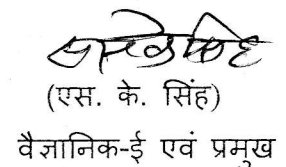 (एस. के. सिंह)
वैज्ञानिक-ई एवं प्रमुख